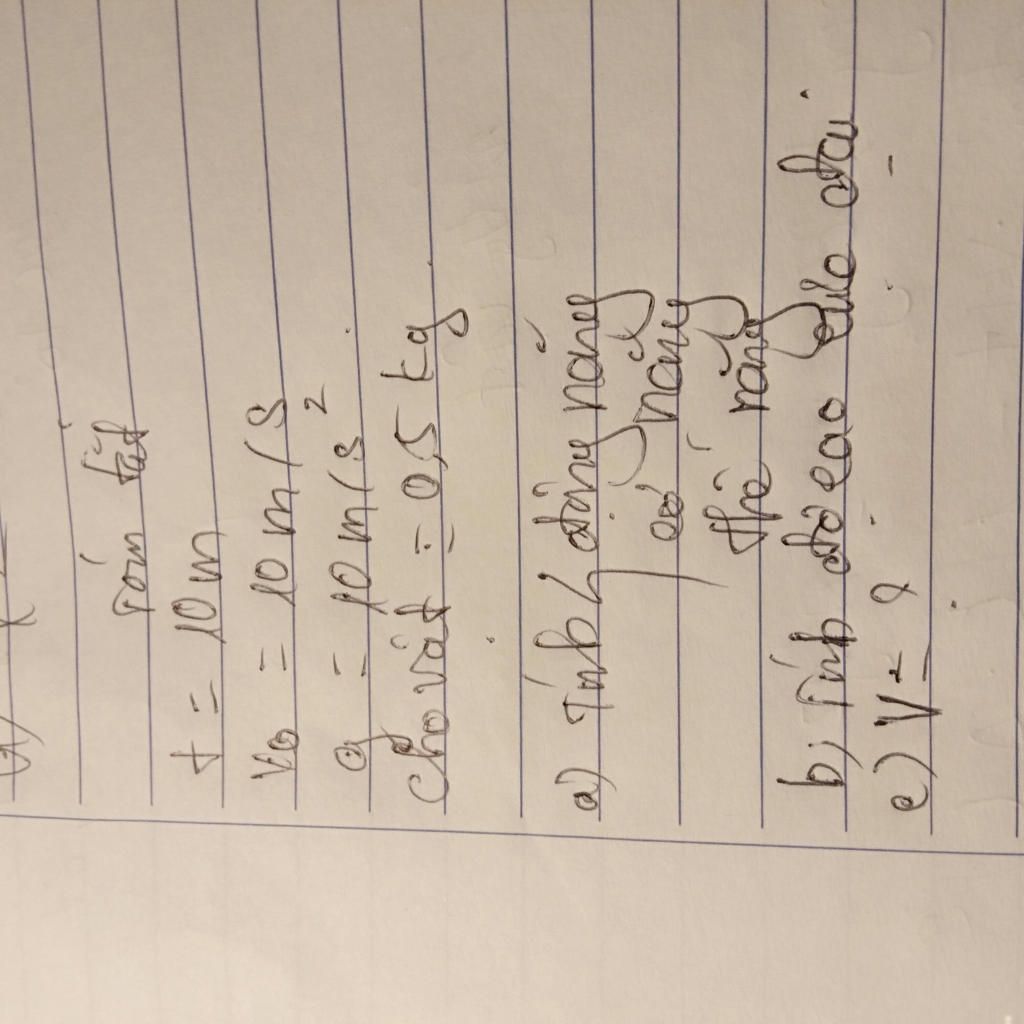 Tóm tắt
t = 10 m
v₀ = 10 m/s
g = 10 m/s²
Cho vật = 0,5 kg
a) Tính động năng
cơ năng
thế năng
b, Tính độ cao cực đại
c) V = ?